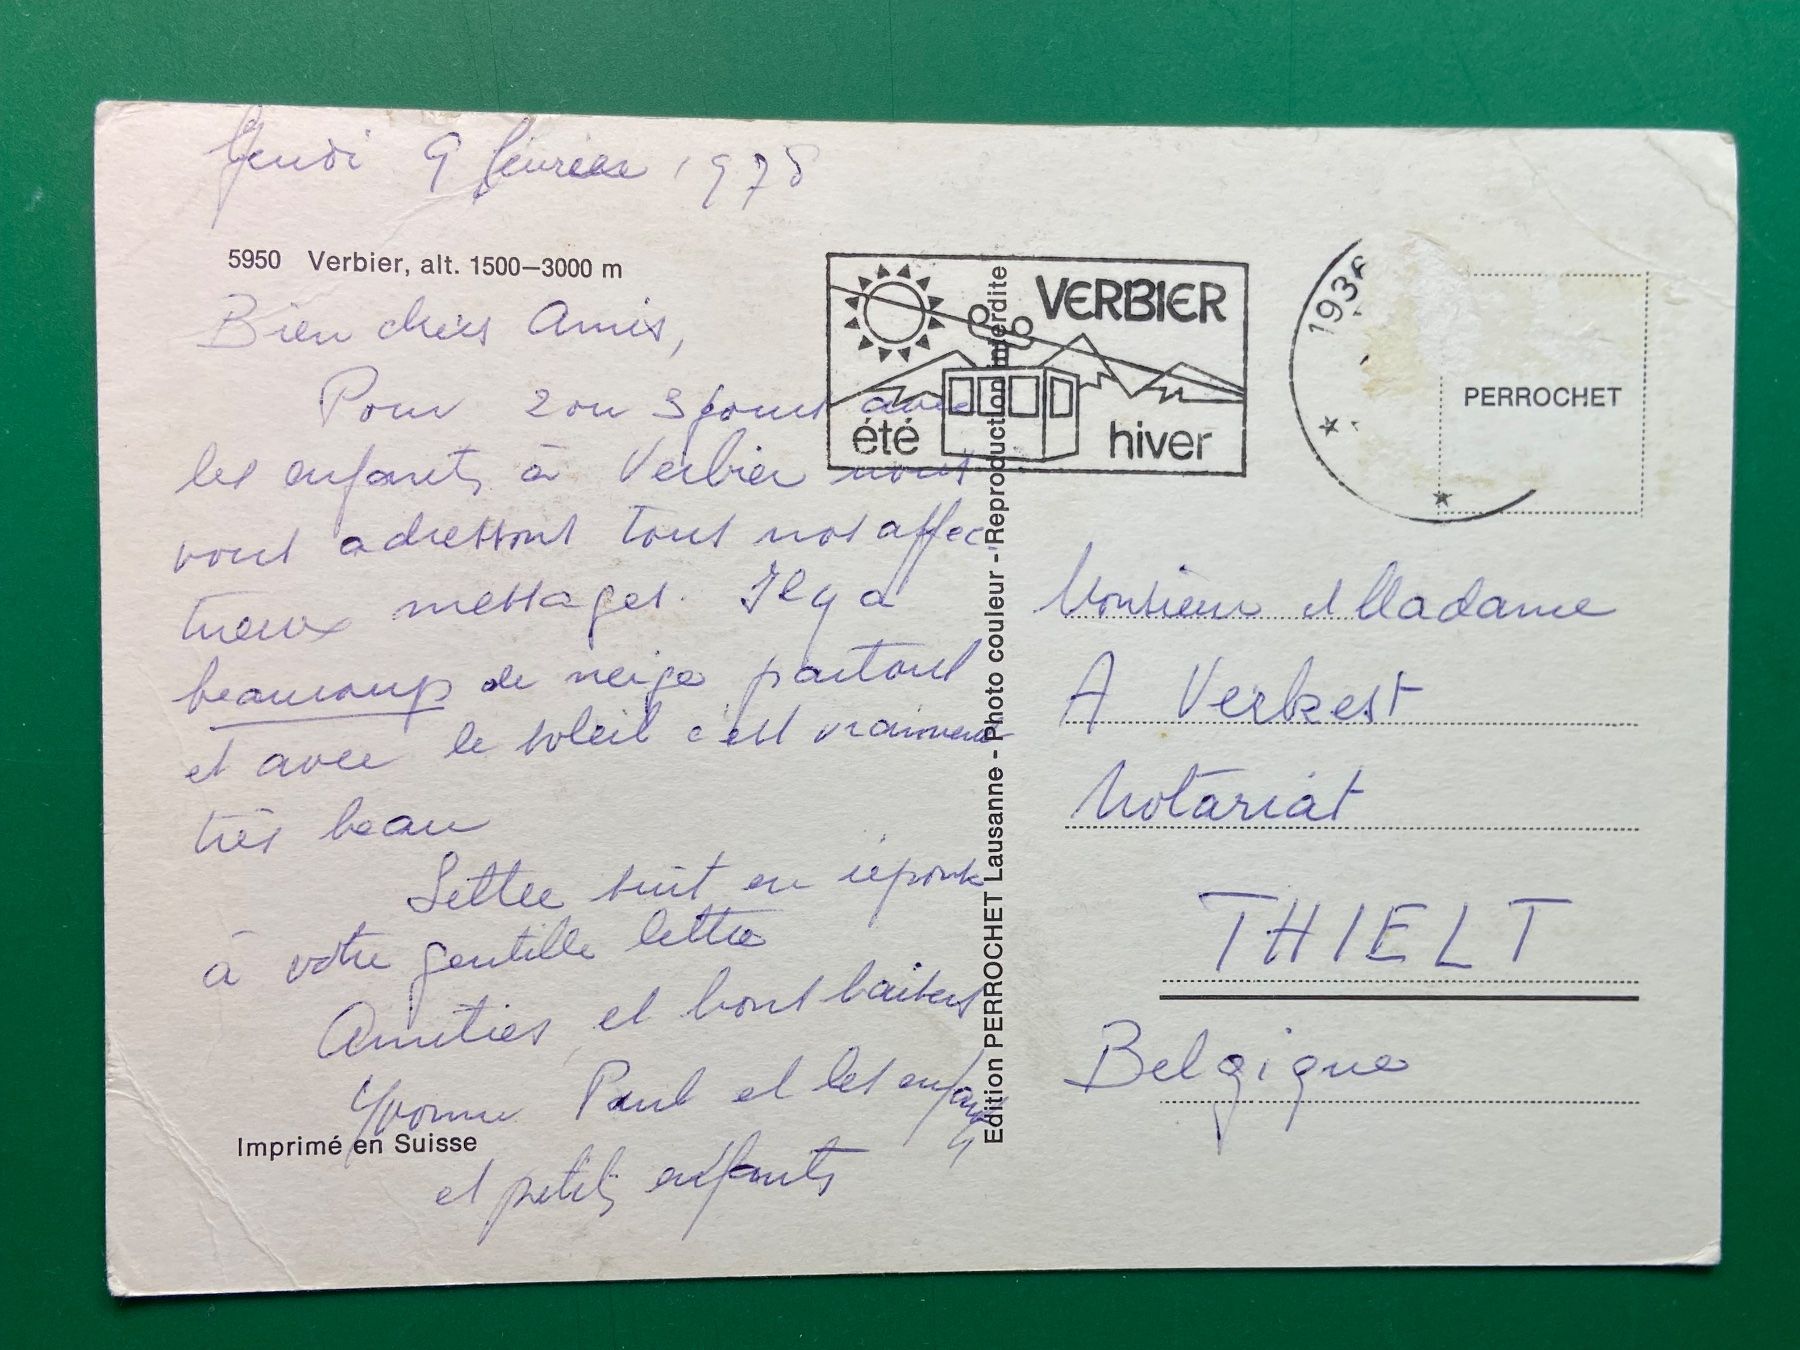 Jeudi 9 février 1978
5950 Verbier, alt. 1500–3000 m
Bien chers Amis,
Pour 2 ou 3 jours avec
les enfants à Verbier nous
vous adressons tous nos affec
tueux messages. Il y a
beaucoup de neige partout
et avec le soleil c'est vraiment
très beau
Lettre suit en réponse
à votre gentille lettre
Amitiés et bons baisers
Yvonne Paul et les enfants
et petits enfants
Imprimé en Suisse
Edition PERROCHET Lausanne - Photo couleur - Reproduction interdite
VERBIER
été hiver
1936
PERROCHET
Monsieur et Madame
A Verkest
Notariat
THIELT
Belgique